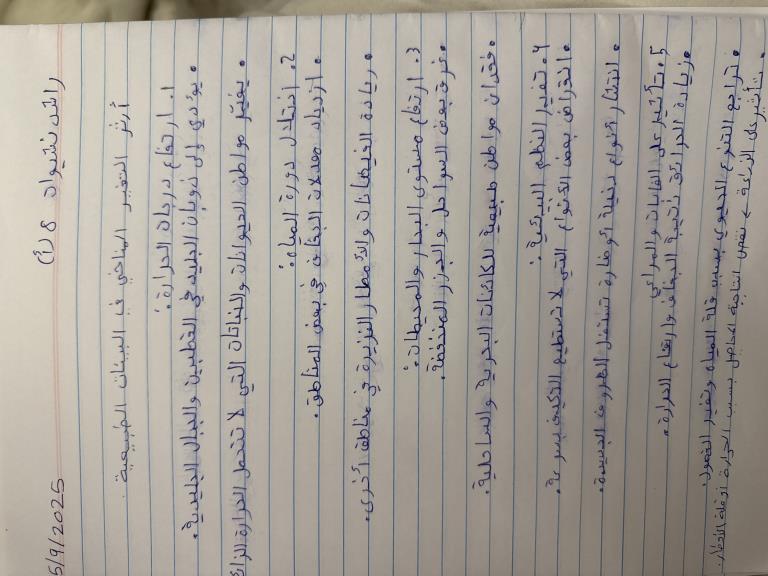 راشد نشوان 8 (أ)
5/9/2025
أثر التغير المناخي في البيئات الطبيعية
1. ارتفاع درجات الحرارة:
• يؤدي إلى ذوبان الجليد في القطبين والجبال الجليدية.
• يغير مواطن الحيوانات والنباتات التي لا تتحمل الحرارة الزائ
2. اختلال دورة المياه:
• ازدياد معدلات الجفاف في بعض المناطق.
• زيادة الفيضانات والأمطار الغزيرة في مناطق أخرى.
3. ارتفاع مستوى البحار والمحيطات:
• غرق بعض السواحل والجزر المنخفضة.
• فقدان مواطن طبيعية للكائنات البحرية والساحلية.
4. تغير النظم البيئية:
• انقراض بعض الأنواع التي لا تستطيع التكيف بسرعة.
• انتشار أنواع دخيلة أو ضارة تستغل الظروف الجديدة.
5. تأثير على الغابات والمراعي
• زيادة الحرائق نتيجة الجفاف وارتفاع الحرارة.
• تراجع التنوع الحيوي بسبب قلة المياه وتغير الفصول.
• تأثير على الزراعة نقص إنتاجية المحاصيل بسبب الحرارة أو قلة الأمطار.